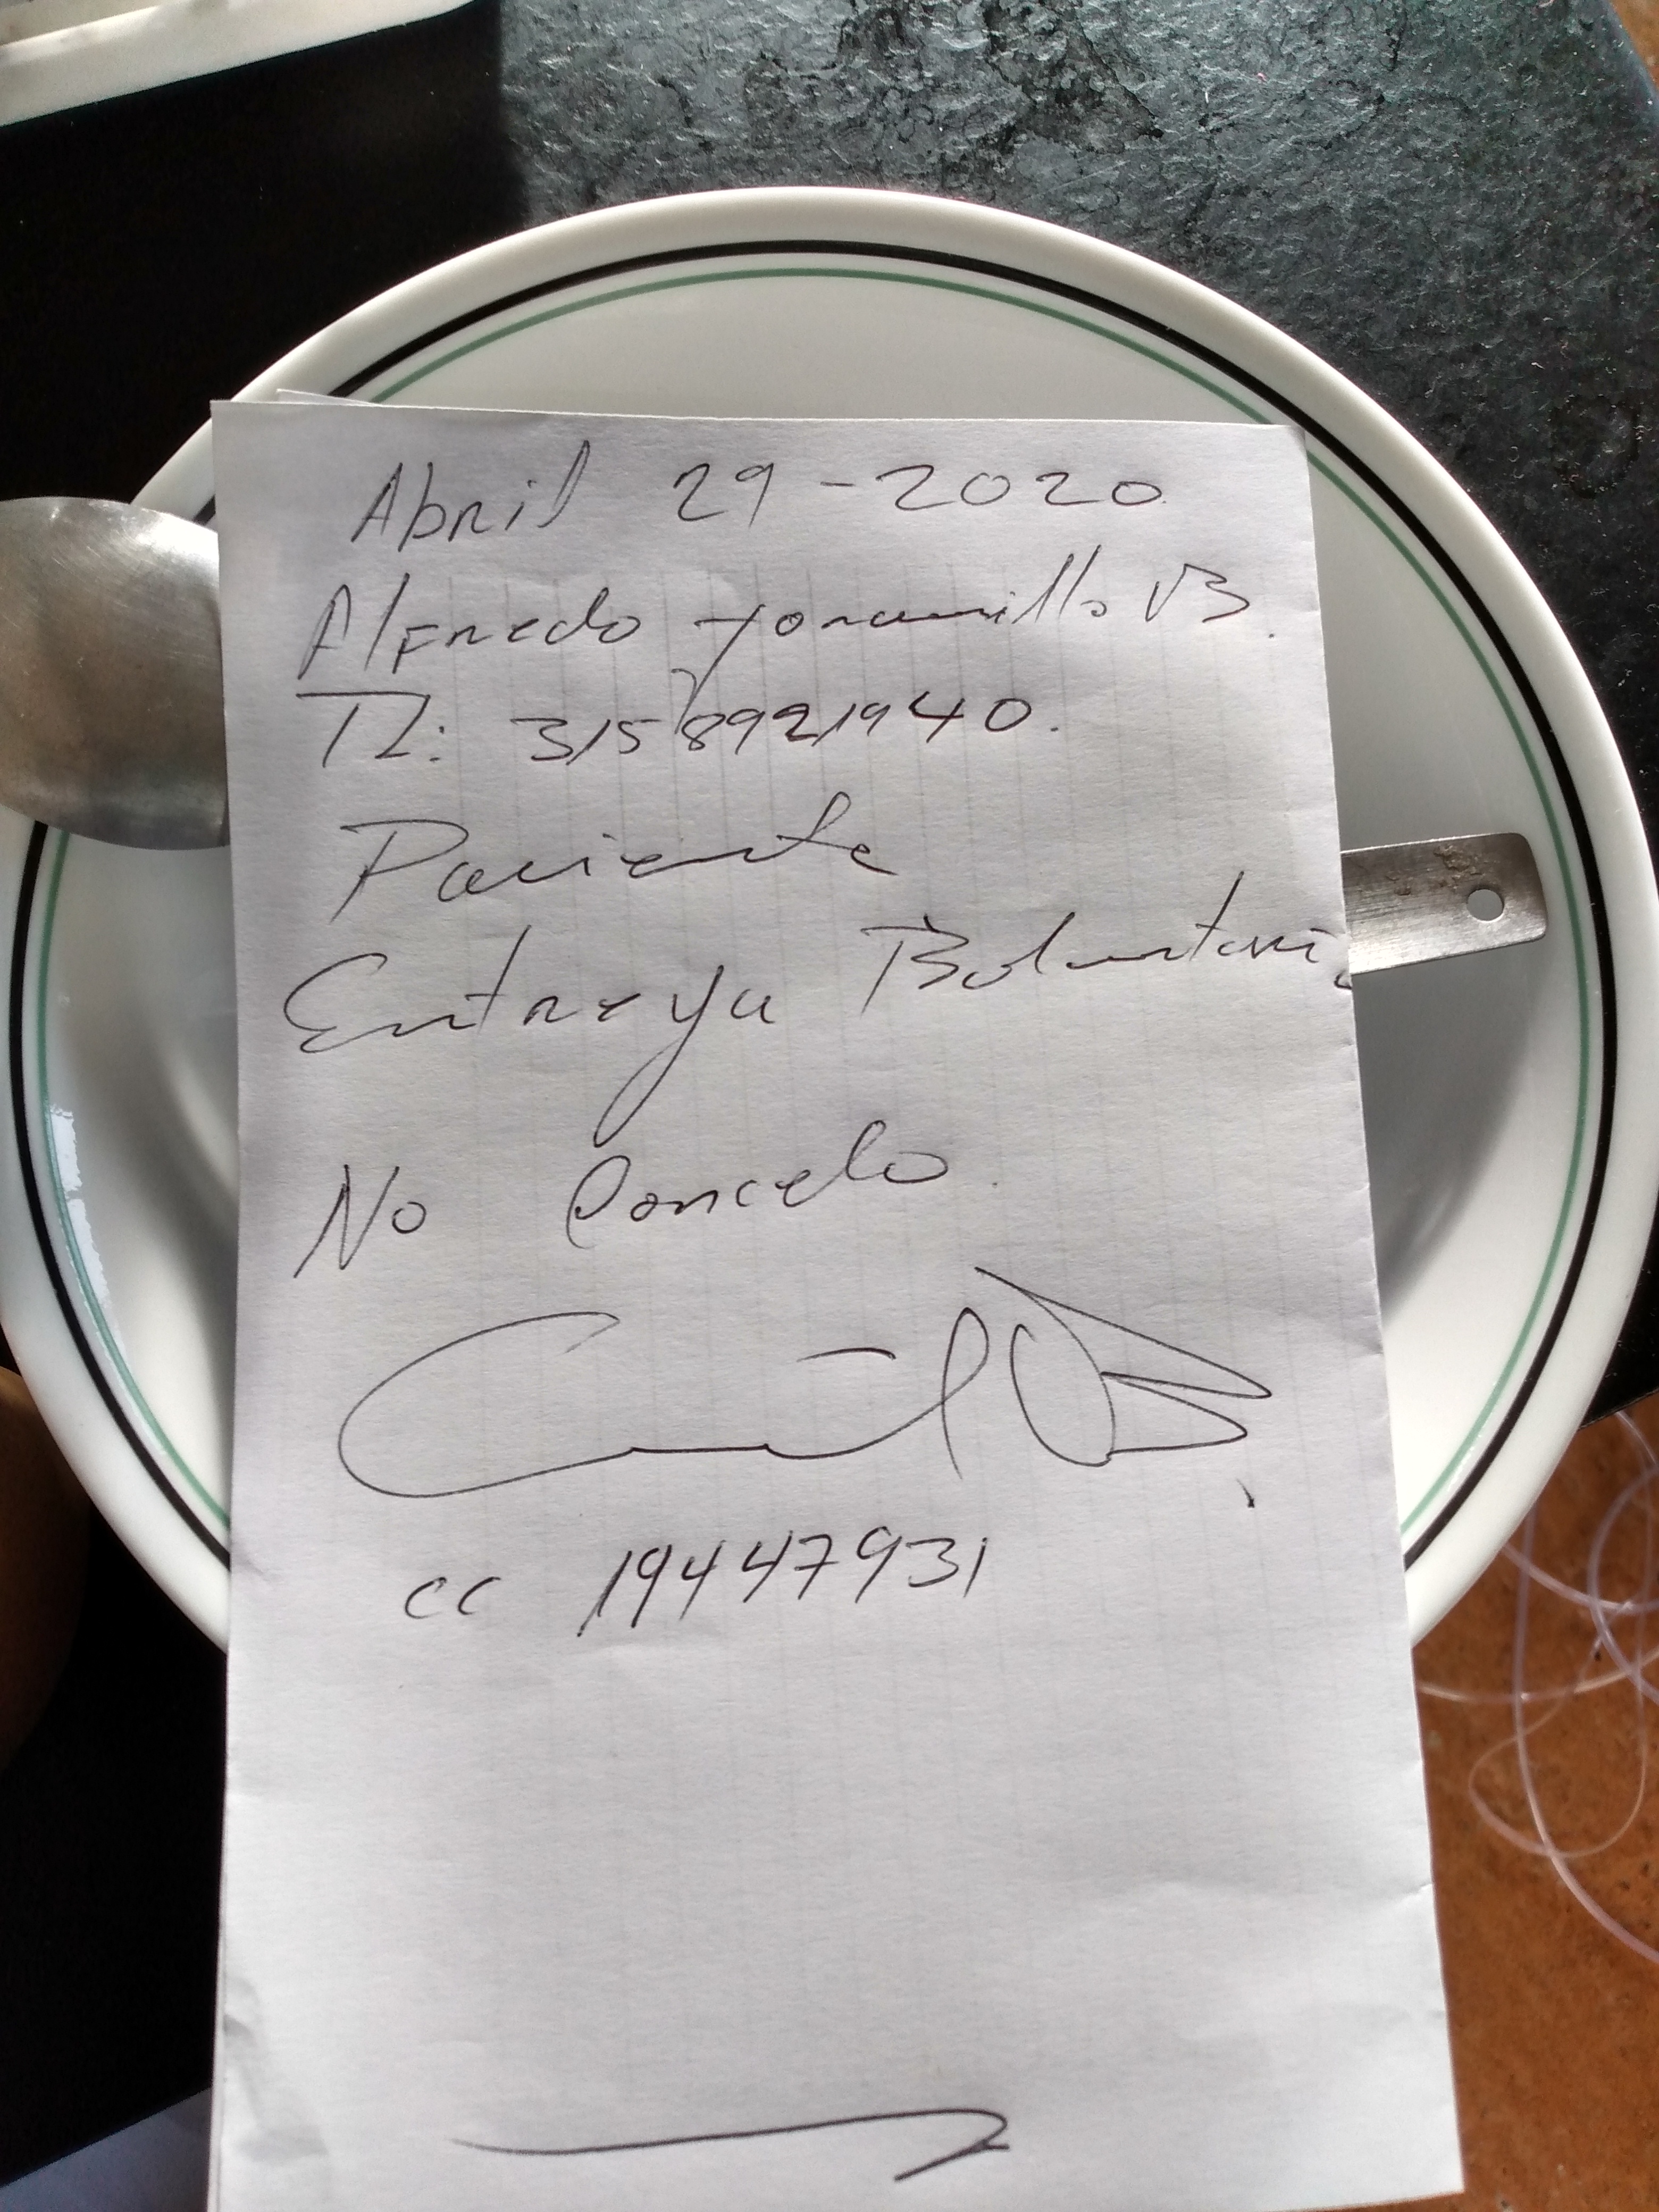 Abril 29-2020
Alfredo Jaramillo VB.
Tl: 3158921940.
Paciente
Entrega Boluntaria
No Cancelo.
cc 19447931